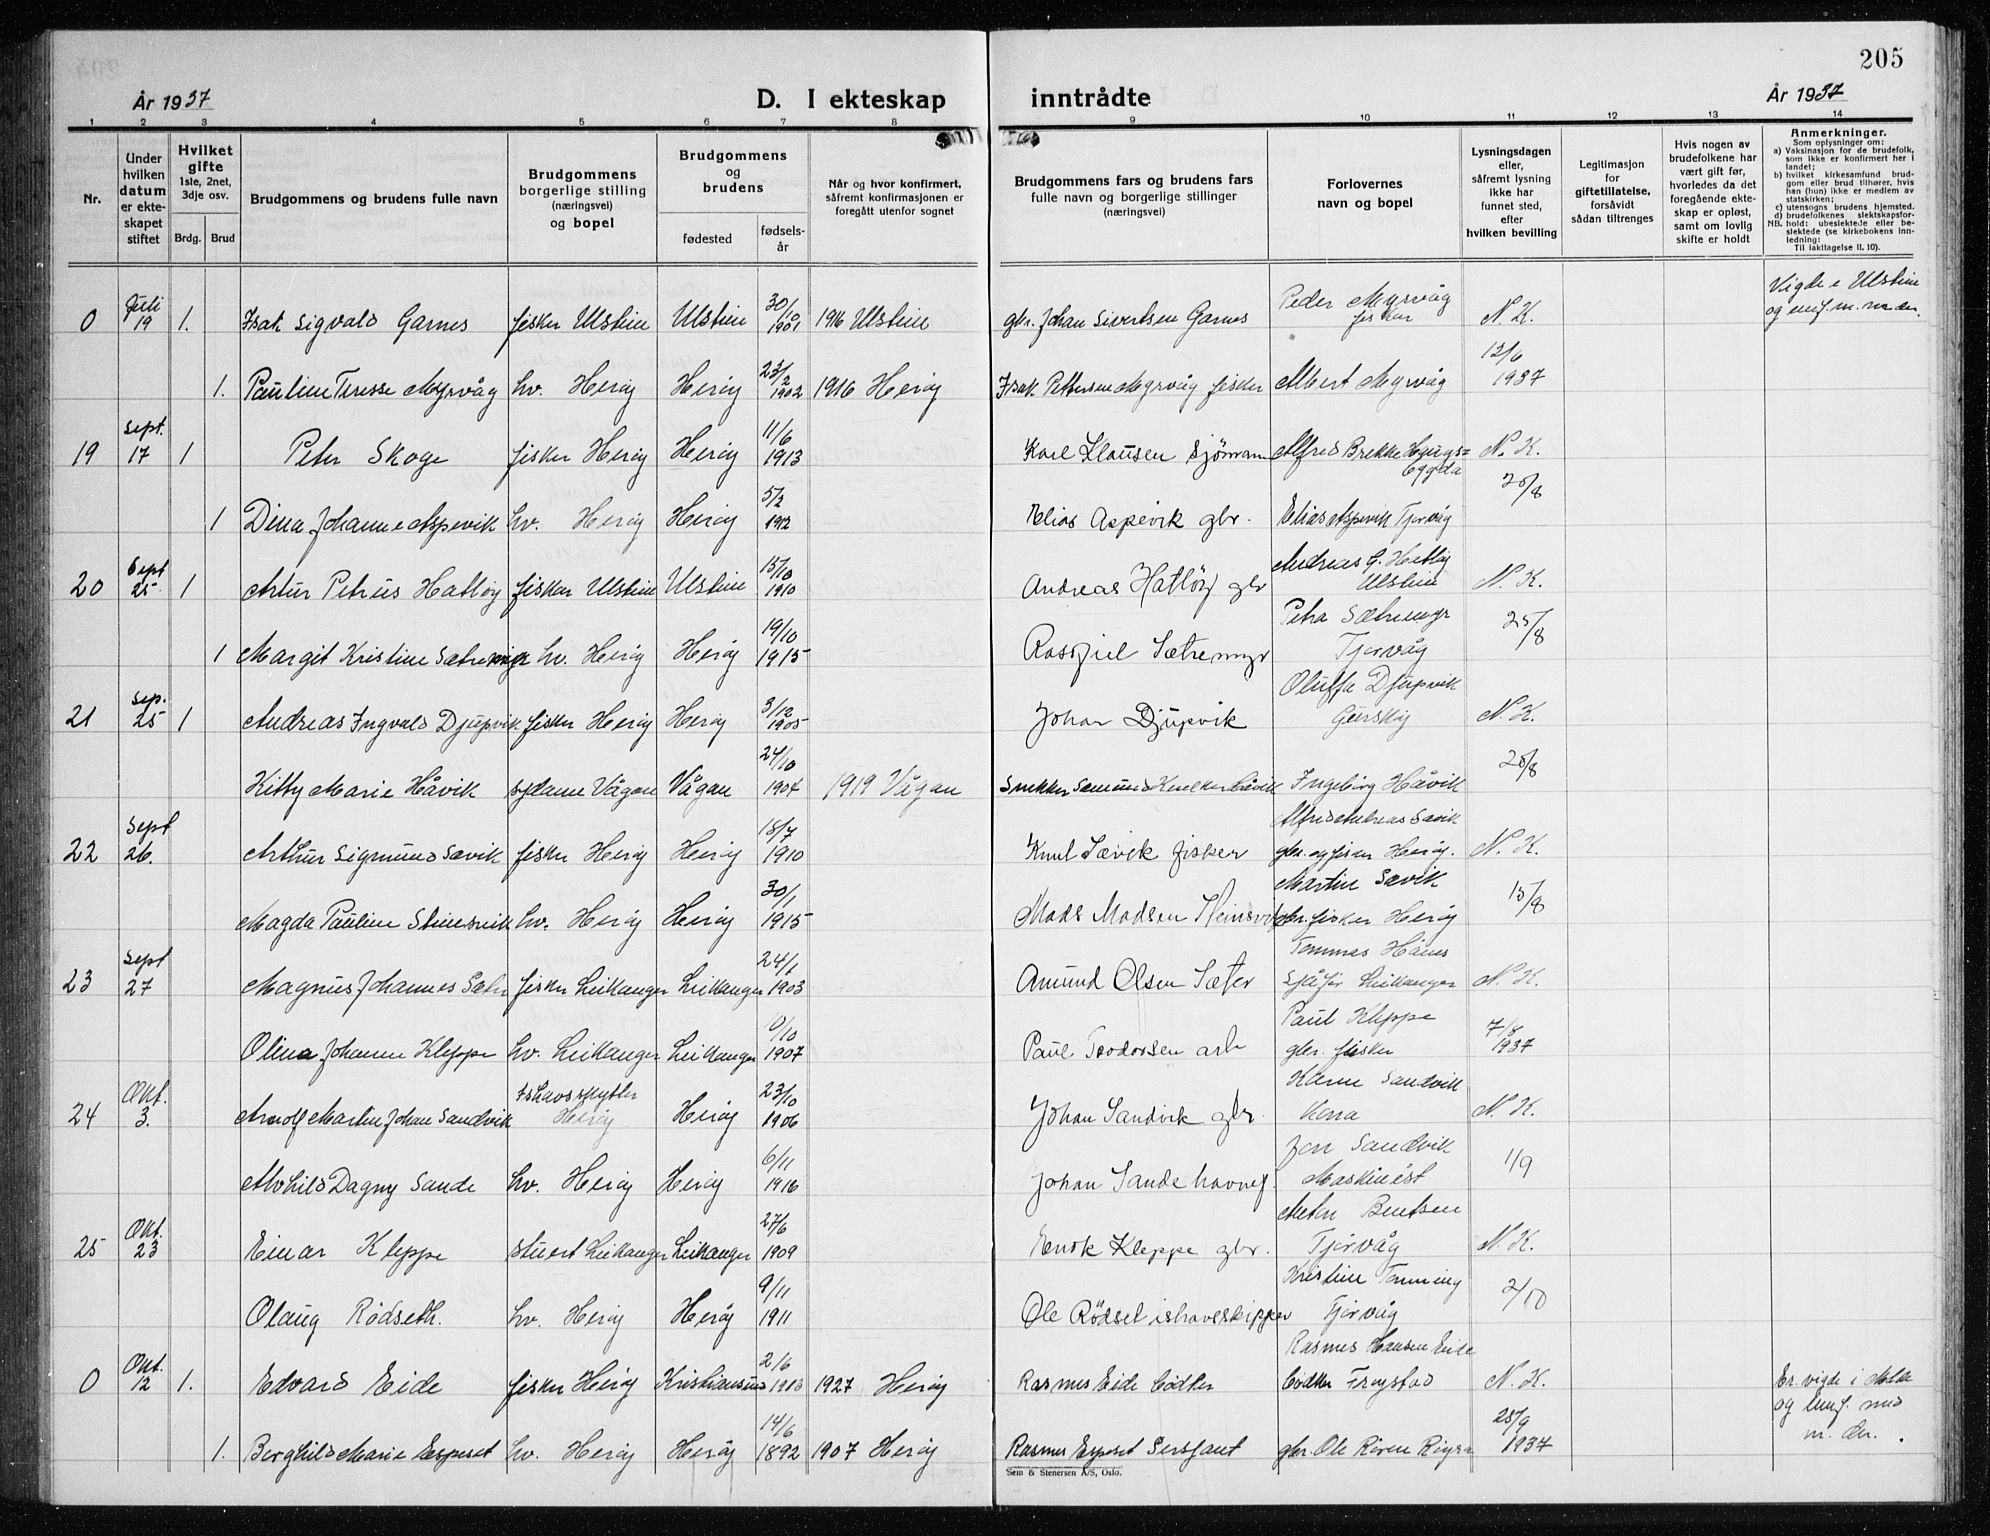 205
År 1937
D. I ekteskap inntrådte
År 1937
1 2 3 4 5 6 7 8 9 10 11 12 13 14
Nr.
Under hvilken datum er ekteskapet stiftet
Hvilket gifte 1ste, 2net, 3dje osv.
Brdg. Brud
Brudgommens og brudens fulle navn
Brudgommens borgerlige stilling (næringsvei) og bopel
Brudgommens og brudens
fødested
fødselsår
Når og hvor konfirmert, såfremt konfirmasjonen er foregått utenfor sognet
Brudgommens fars og brudens fars fulle navn og borgerlige stillinger (næringsvei)
Forlovernes navn og bopel
Lysningsdagen eller, såfremt lysning ikke har funnet sted, efter hvilken bevilling
Legitimasjon for giftetillatelse, forsåvidt sådan tiltrenges
Hvis nogen av brudefolkene har vært gift før, hvorledes da det foregående ekteskap er opløst, samt om lovlig skifte er holdt
Anmerkninger.
Som oplysninger om:
a) Vaksinasjon for de brudefolk, som ikke er konfirmert her i landet;
b) hvilket kirkesamfund brudgom eller brud tilhører, hvis han (hun) ikke er medlem av statskirken;
c) utensogns brudens hjemsted.
d) brudefolkenes slektskapsforhold: ubeslektede eller beslektede (se kirkebokens innledning:
NB. Til iakttagelse II. 10).
0 Juli 19 1. Isak Sigvald Garnes fisker Ulstein Ulstein 30/10 1901 1916 Ulstein gbr. Johan Sivertsen Garnes Peder Myrvåg fisker N. K. Vigde i Ulstein
1. Pauline Teresse Myrvåg hv. Herøy Herøy 23/2 1902 1916 Herøy Isak Pettersen Myrvåg fisker Albert Myrvåg 12/6 1937
19 Sept. 17 1 Peter Skoge fisker Herøy Herøy 11/6 1913 Karl Klausen Sjömann Alfred Brekke Haugsbygda N. K.
1 Dina Johanne Aspevik hv. Herøy Herøy 5/2 1912 Elias Aspevik gbr. Elias Aspevik Tjørvåg 20/8
20 Sept 25 1 Artur Petrus Hatløy fisker Ulstein Ulstein 15/10 1910 Andreas Hatlöy gbr Andreas G. Hatløy Ulstein N. K.
1 Margit Kristine Sætremyr hv. Herøy Herøy 19/10 1915 Sætremyr Petra Sætremyr Tjørvåg 25/8
21 Sep. 25 1 Andreas Ingvald Djupvik fisker Herøy Herøy 3/12 1905 Johan Djupvik Oluffa Djupvik Gurskøy N. K.
Kitty Marie Håvik sydame Vågan Vågan 24/10 1904 1919 Vågan Snekker Håvik Ingebörg Håvik 20/8
22 Sept 26. Arthur Sigmund Sævik fisker Herøy Herøy 15/7 1910 Knut Sævik fisker Alfred Andreas Sævik gbr. og fisker Herøy. N. K.
Magda Pauline Steinsvik hv. Herøy Herøy 30/1 1915 Mads Madsen Steinsvik Martin Sævik gbr. fisker Herøy 15/8
23 Sept 27 Magnus Johannes Sæter fisker Leikanger Leikanger 24/1 1903 Amund Olsen Sæter Tommas sjåfør Leikanger N. K.
Olina Johanne Kleppe hv. Leikanger Leikanger 10 1907 Paul Teodorsen arb Paul Kleppe gbr. fisker 7/8 1937
24 Okt. 3. Arnolf Martin Johan Sandvik Ishavsskytter Herøy Herøy 23/10 1906 Johan Sandvik gbr. Sandvik N. K.
Alvhild Dagny Sande hv. Herøy Herøy 6/11 1916 Johan Sande havnef. Jon Sandvik Maskinist 1/9
25 Okt. 23 Einar Kleppe stuert Leikanger Leikanger 27/6 1909 Enok Kleppe gbr. Bentsen Tjørvåg N. K.
Olaug Rødseth. hv. Herøy Herøy 9/11 1911 Ole Rödset ishavskipper Kristine Tjørvåg 2/10
0 Okt. 12 1. Edvard Eide fisker Herøy Kristiansund 2/6 1913 1927 Herøy Rasmus Eide bødker Rasmus Hansen Eide bødker N. K. Er vigde i
1. Borghild Marie Espeset hv. Herøy Herøy 14/6 1892 1907 Herøy Rasmus Espeset Sersjant gbr. Ole 28/9 1937
Sem & Stenersen A/S, Oslo.